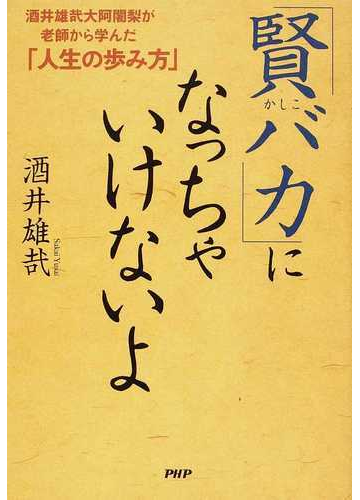 酒井雄哉大阿闍梨が
老師から学んだ
「人生の歩み方」
「賢バカ」に
かしこ
なっちゃ
いけないよ
酒井雄哉
Sakai Yusai
PHP